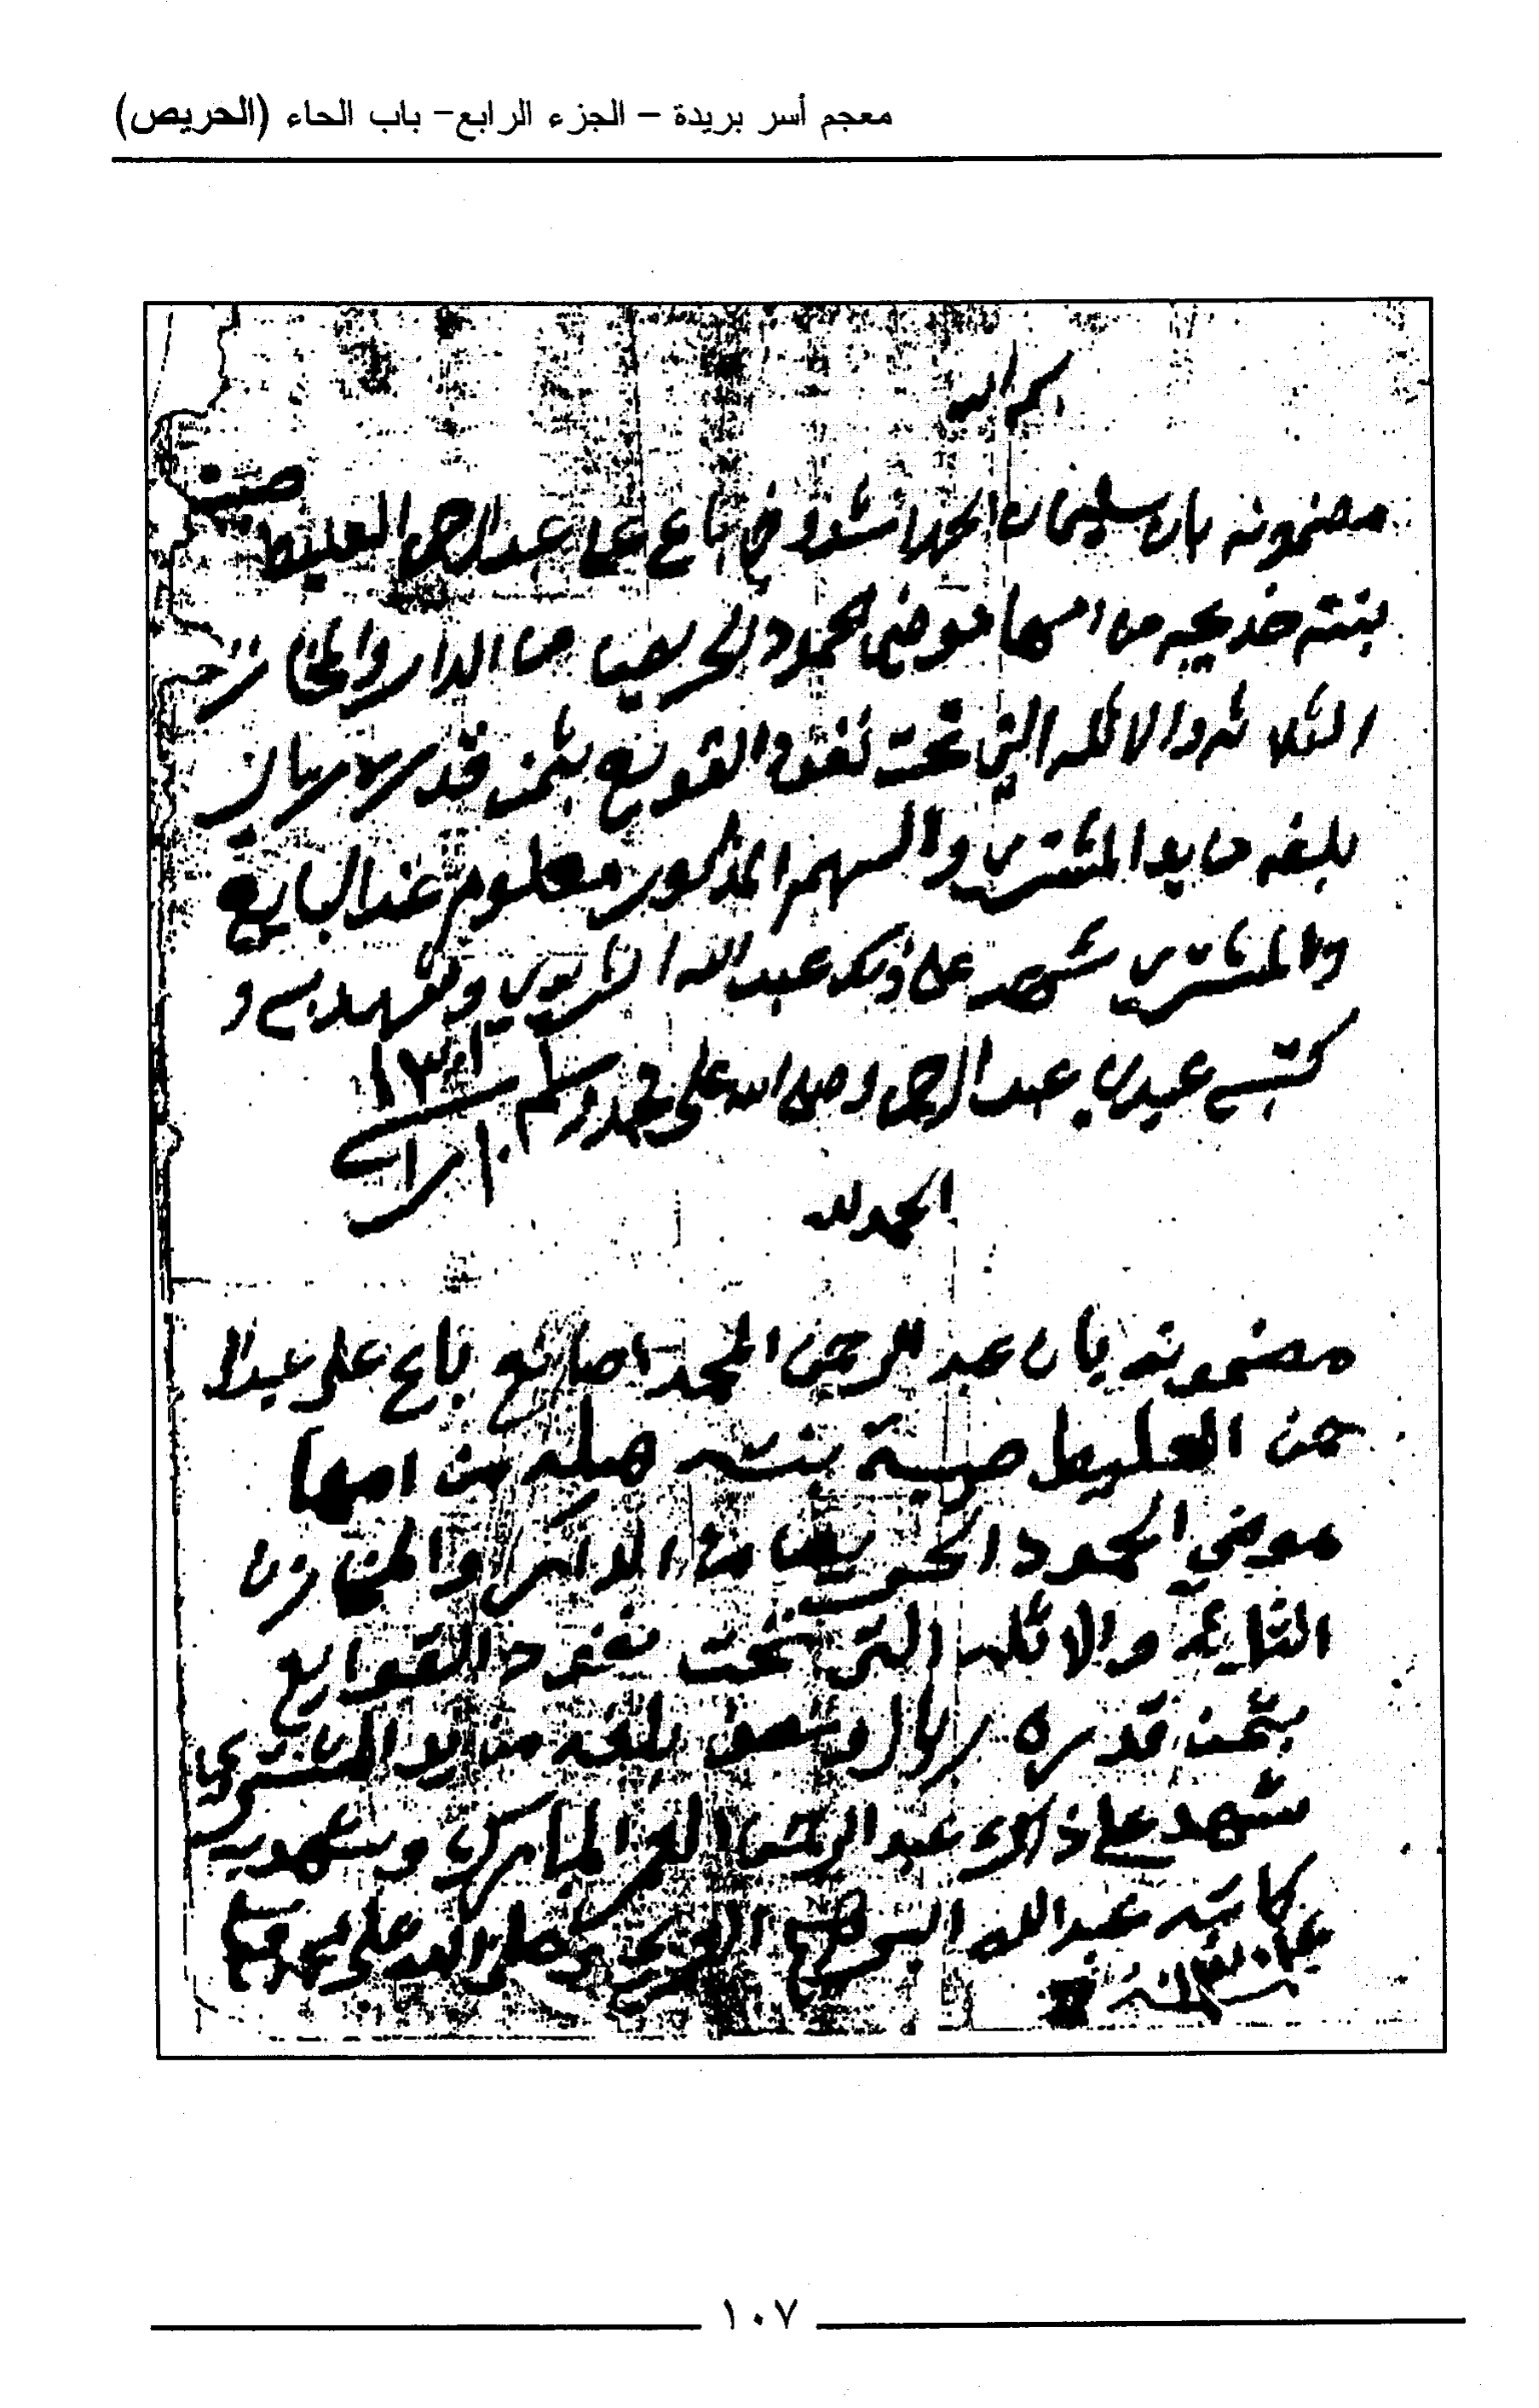 معجم أسر بريدة – الجزء الرابع– باب الحاء (الحريص)
بسم الله
مضمونه بان سليمان الحمد باع على عبدالرحمن العليط
بنته خديجه من امها موضي الحمود الحريص من الدار والمخازن
الثلاثه والاثله التي تحت نفود القويع بثمن قدره ريالين
بلغه من يد المشتري والسهم المذكور معلوم عند البايع
والمشتري شهد على ذلك عبدالله وشهد به و
كتبه عبدالرحمن وصلى الله على محمد وسلم
١٣٠١
الحمد لله
مضمونه بان عبدالرحمن المحمد اصانع باع على عبدالر
حمن العليط صيبة بنته هيله من امها
موضي الحمود الحريص من الدار والمخازن
الثلاثه والاثله التي تحت نفود القوايع
بثمن قدره ريال ونصف بلغه من يد المشتري
شهد على ذالك عبدالرحمن وشهد به
كاتبه عبدالله البراهيم وصلى الله على محمد
١٠٧